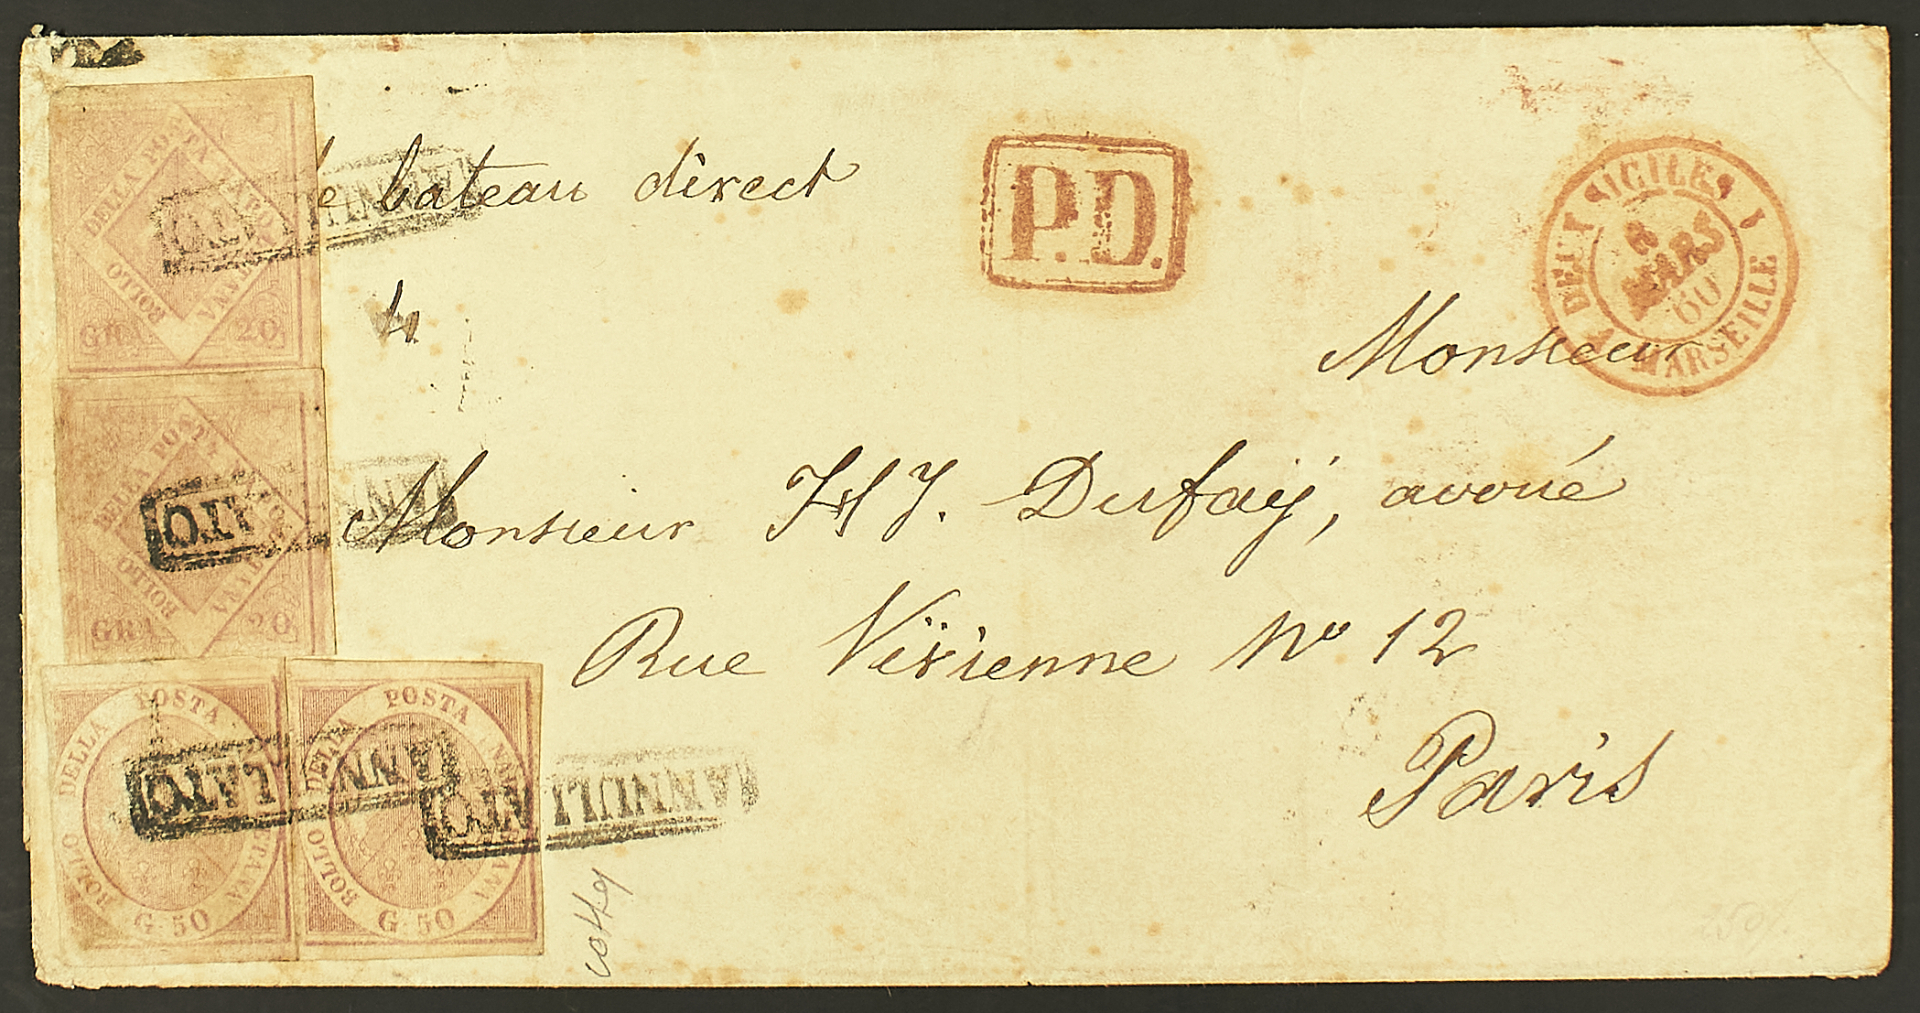 le bateau direct
P.D.
DEUX SICILES
8
MARS
60
MARSEILLE
4
Monsieur
Monsieur H J. Dufaÿ, avoué
Rue Vivienne No 12
Paris
BOLLO DELLA POSTA NAPOLETANA
GRA 20
ANNULLATO
BOLLO DELLA POSTA NAPOLETANA
GRA 20
ANNULLATO
BOLLO DELLA POSTA NAPOLETANA
G. 50
ANNULLATO
BOLLO DELLA POSTA NAPOLETANA
G. 50
ANNULLATO